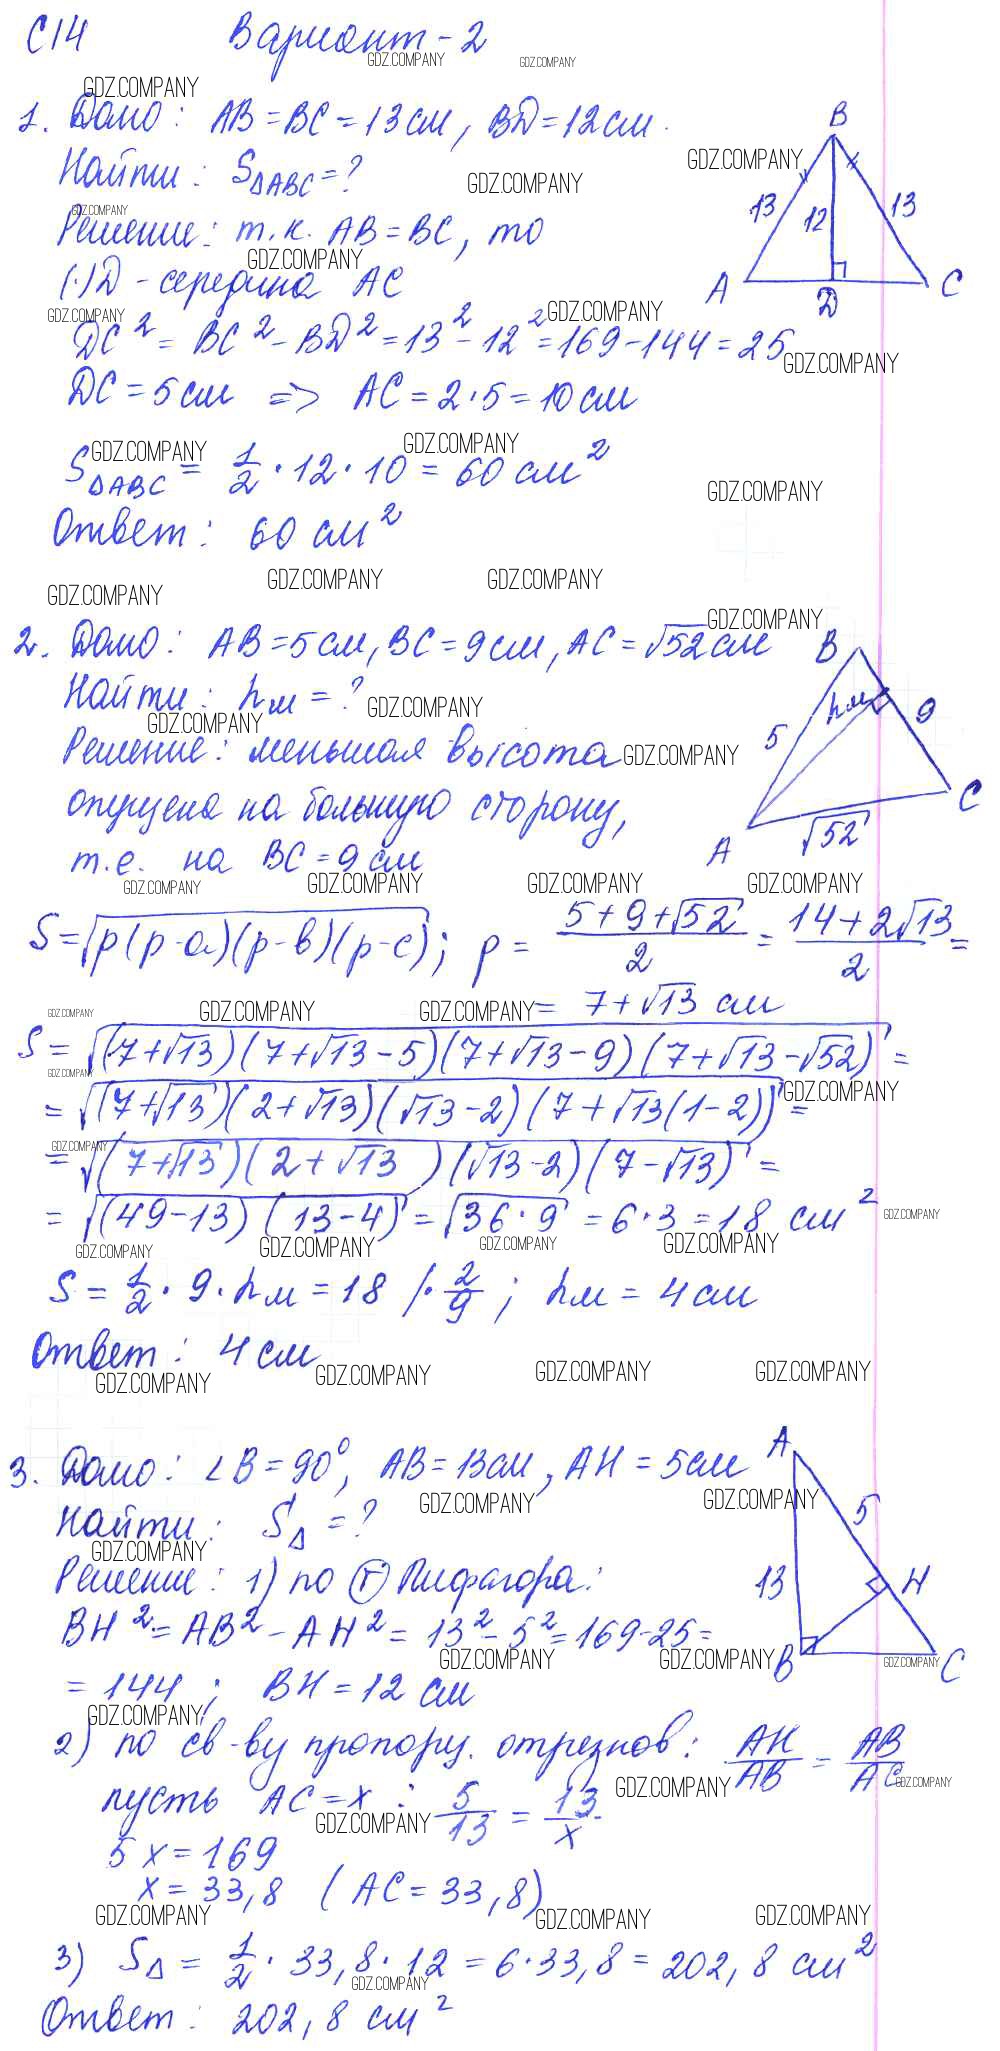 С14 Вариант-2
1. Дано: AB=BC=13см, BD=12см.
Найти: S△ABC=?
Решение: т.к. AB=BC, то
(·)D-середина AC
DC²=BC²-BD²=13²-12²=169-144=25
DC=5см => AC=2·5=10см
S△ABC= 1/2·12·10=60см²
Ответ: 60 см²
B
13 12 13
A D C
2. Дано: AB=5см, BC=9см, AC=√52см
Найти: hм=?
Решение: меньшая высота
опущена на большую сторону,
т.е. на BC=9см
B
5 hм 9
A √52 C
S=√p(p-a)(p-b)(p-c); p= (5+9+√52)/2 = (14+2√13)/2 =
= 7+√13 см
S=√(7+√13)(7+√13-5)(7+√13-9)(7+√13-√52) =
=√(7+√13)(2+√13)(√13-2)(7+√13(1-2)) =
=√(7+√13)(2+√13)(√13-2)(7-√13) =
=√(49-13)(13-4)=√36·9=6·3=18 см²
S=1/2·9·hм=18 /·2/9; hм=4см
Ответ: 4см
3. Дано: ∠B=90°, AB=13см, AH=5см
Найти: S△=?
Решение: 1) по Т Пифагора:
BH²=AB²-AH²=13²-5²=169-25=
=144; BH=12 см
A
5
13 H
B C
2) по св-ву пропорц. отрезков: AH/AB=AB/AC
пусть AC=x: 5/13=13/x
5x=169
x=33,8 (AC=33,8)
3) S△= 1/2·33,8·12=6·33,8=202,8 см²
Ответ: 202,8 см²
GDZ.COMPANY